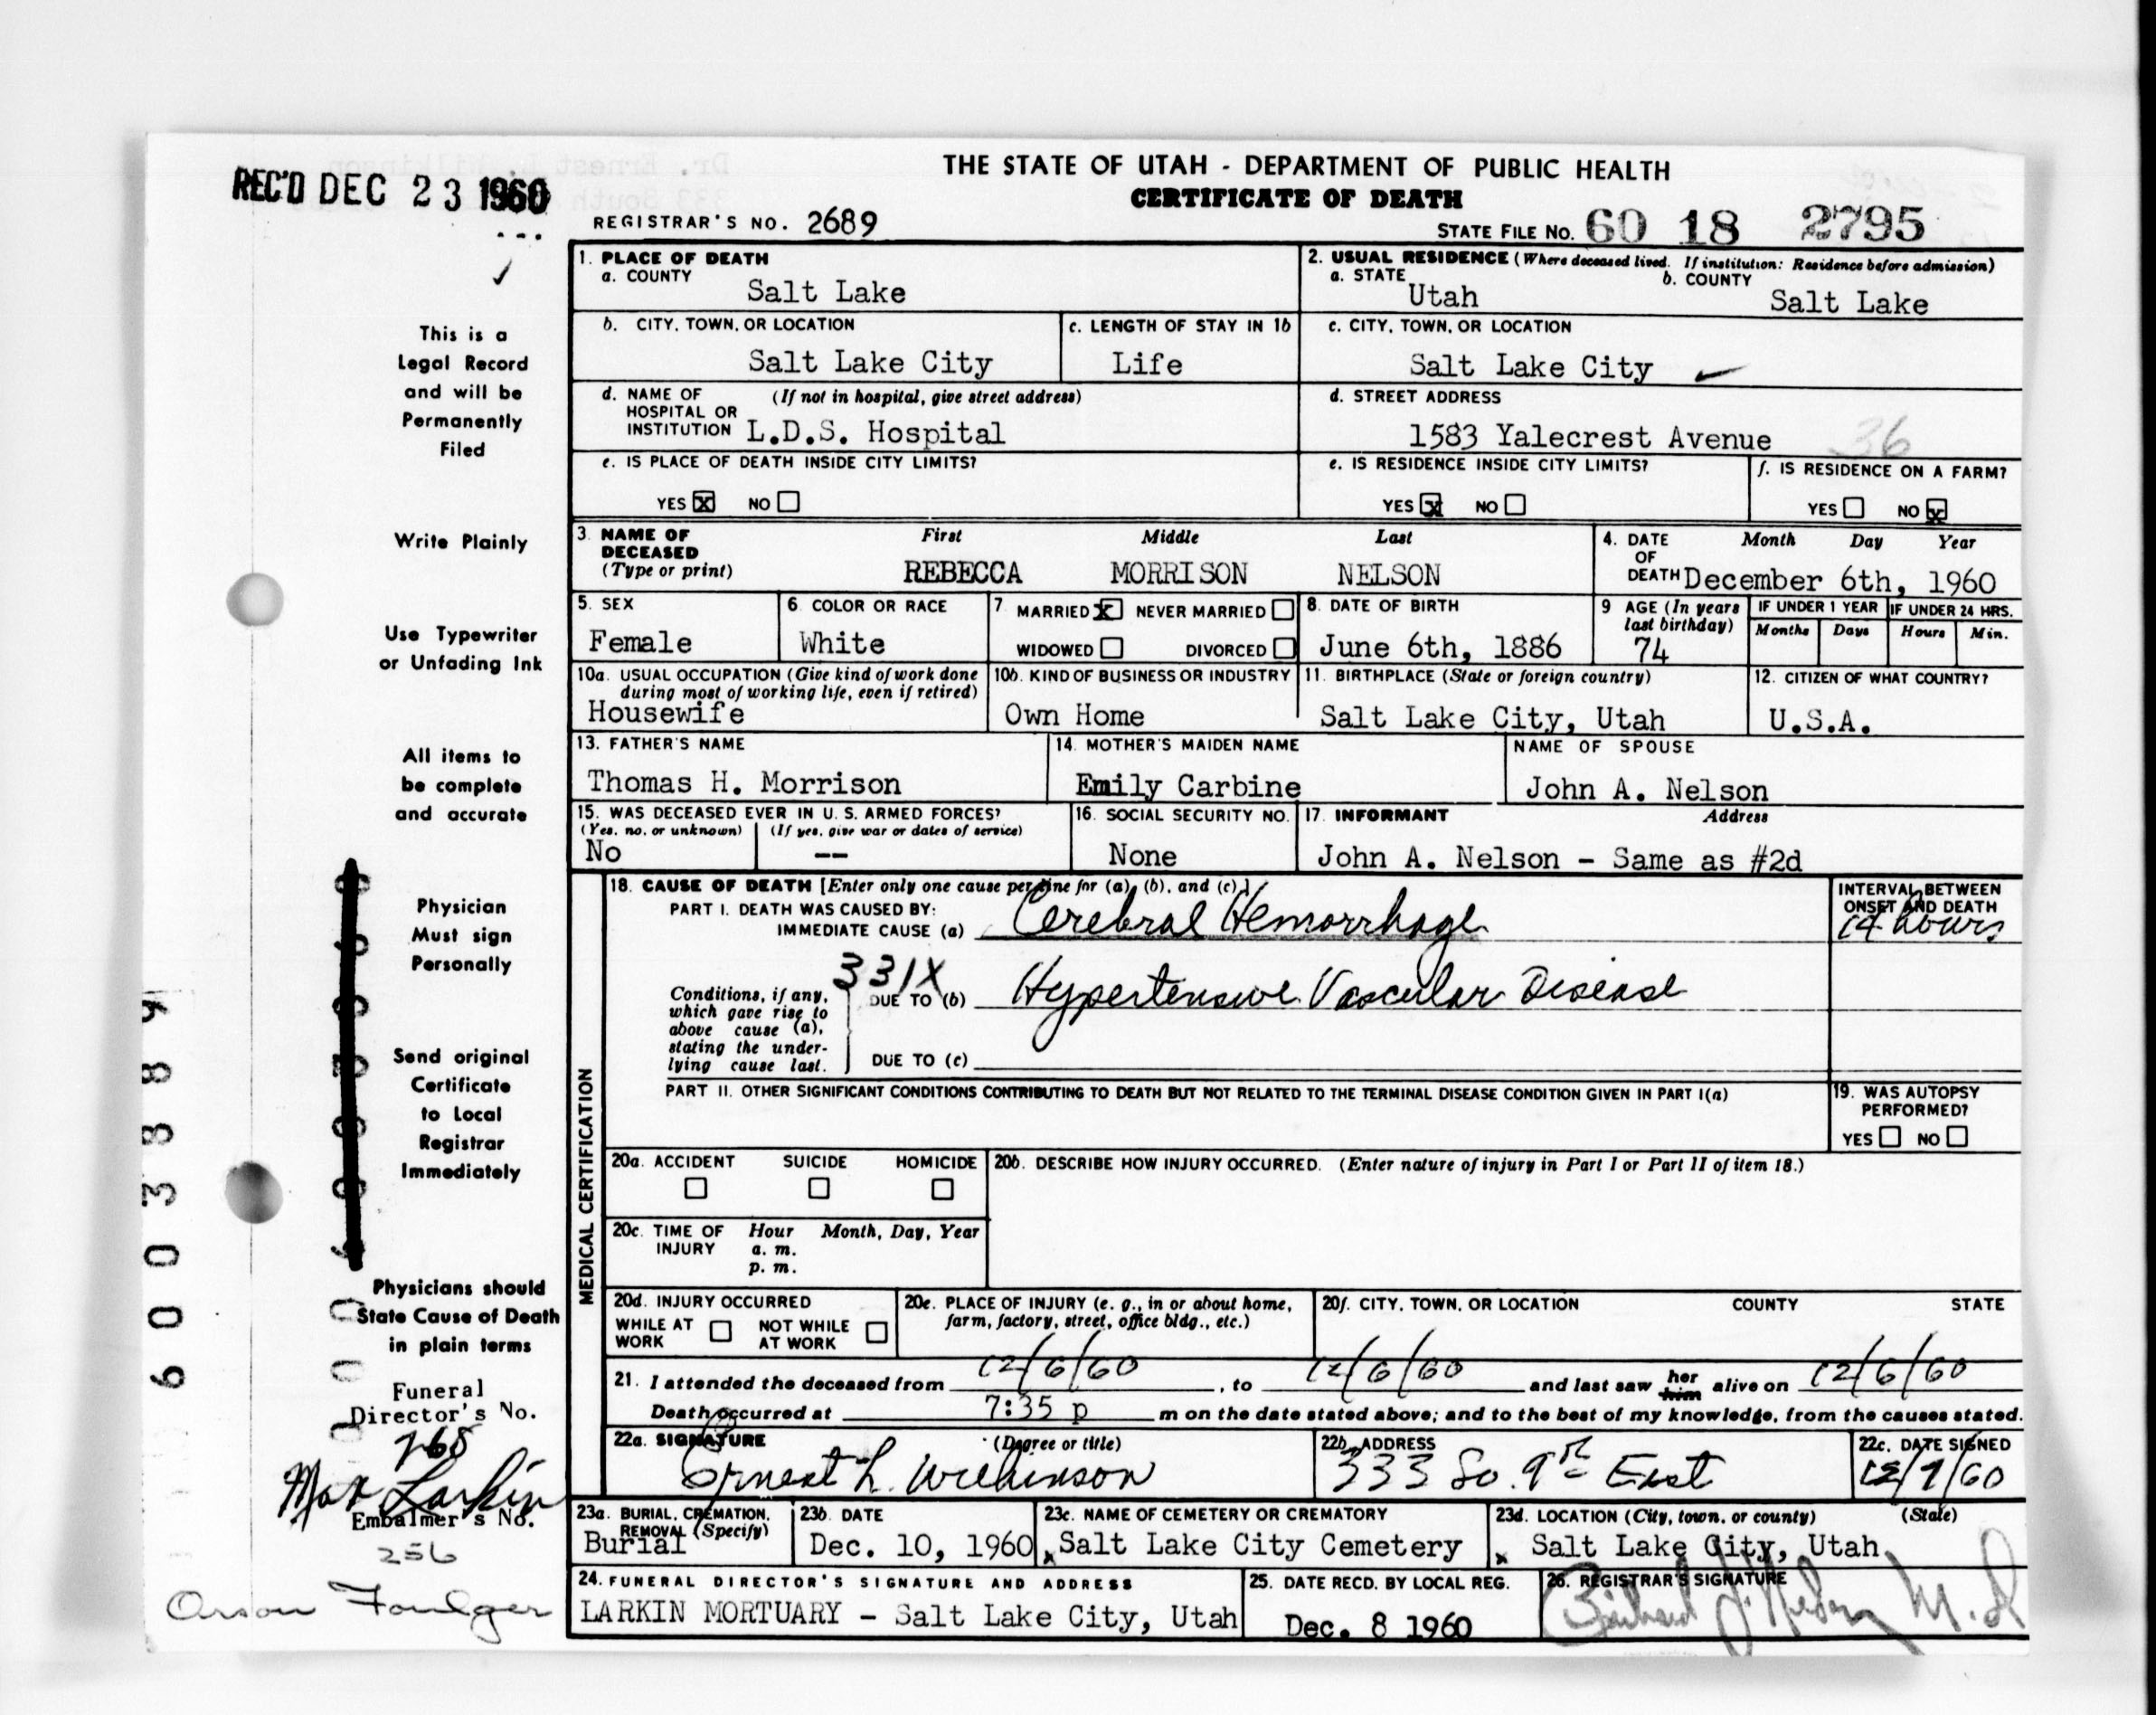 REC'D DEC 23 1960
THE STATE OF UTAH - DEPARTMENT OF PUBLIC HEALTH
CERTIFICATE OF DEATH
REGISTRAR'S NO. 2689
STATE FILE NO. 60 18 2795
1. PLACE OF DEATH
a. COUNTY
Salt Lake
2. USUAL RESIDENCE (Where deceased lived. If institution: Residence before admission)
a. STATE
Utah
b. COUNTY
Salt Lake
b. CITY, TOWN, OR LOCATION
Salt Lake City
c. LENGTH OF STAY IN 1b
Life
c. CITY, TOWN, OR LOCATION
Salt Lake City
d. NAME OF HOSPITAL OR INSTITUTION
(If not in hospital, give street address)
L.D.S. Hospital
d. STREET ADDRESS
1583 Yalecrest Avenue 36
e. IS PLACE OF DEATH INSIDE CITY LIMITS?
YES X NO
e. IS RESIDENCE INSIDE CITY LIMITS?
YES X NO
f. IS RESIDENCE ON A FARM?
YES NO X
3. NAME OF DECEASED
(Type or print)
First Middle Last
REBECCA MORRISON NELSON
4. DATE OF DEATH
Month Day Year
December 6th, 1960
5. SEX
Female
6. COLOR OR RACE
White
7. MARRIED X NEVER MARRIED
WIDOWED DIVORCED
8. DATE OF BIRTH
June 6th, 1886
9 AGE (In years last birthday)
74
IF UNDER 1 YEAR
Months Days
IF UNDER 24 HRS.
Hours Min.
10a. USUAL OCCUPATION (Give kind of work done during most of working life, even if retired)
Housewife
10b. KIND OF BUSINESS OR INDUSTRY
Own Home
11. BIRTHPLACE (State or foreign country)
Salt Lake City, Utah
12. CITIZEN OF WHAT COUNTRY?
U.S.A.
13. FATHER'S NAME
Thomas H. Morrison
14. MOTHER'S MAIDEN NAME
Emily Carbine
NAME OF SPOUSE
John A. Nelson
15. WAS DECEASED EVER IN U.S. ARMED FORCES?
(Yes, no, or unknown) (If yes, give war or dates of service)
No --
16. SOCIAL SECURITY NO.
None
17. INFORMANT Address
John A. Nelson - Same as #2d
MEDICAL CERTIFICATION
18. CAUSE OF DEATH [Enter only one cause per line for (a), (b), and (c).]
PART I. DEATH WAS CAUSED BY:
IMMEDIATE CAUSE (a) Cerebral Hemorrhage
INTERVAL BETWEEN ONSET AND DEATH
14 hours
331X
Conditions, if any, which gave rise to above cause (a), stating the underlying cause last.
DUE TO (b) Hypertensive Vascular Disease
DUE TO (c)
PART II. OTHER SIGNIFICANT CONDITIONS CONTRIBUTING TO DEATH BUT NOT RELATED TO THE TERMINAL DISEASE CONDITION GIVEN IN PART I(a)
19. WAS AUTOPSY PERFORMED?
YES NO
20a. ACCIDENT SUICIDE HOMICIDE
20b. DESCRIBE HOW INJURY OCCURRED. (Enter nature of injury in Part I or Part II of item 18.)
20c. TIME OF INJURY
Hour Month, Day, Year
a. m.
p. m.
20d. INJURY OCCURRED
WHILE AT WORK NOT WHILE AT WORK
20e. PLACE OF INJURY (e. g., in or about home, farm, factory, street, office bldg., etc.)
20f. CITY, TOWN, OR LOCATION COUNTY STATE
21. I attended the deceased from 12/6/60, to 12/6/60 and last saw her him alive on 12/6/60
Death occurred at 7:35 p m on the date stated above; and to the best of my knowledge, from the causes stated.
22a. SIGNATURE (Degree or title)
Ernest L. Wilkinson
22b. ADDRESS
333 So. 9th East
22c. DATE SIGNED
12/7/60
23a. BURIAL, CREMATION, REMOVAL (Specify)
Burial
23b. DATE
Dec. 10, 1960
23c. NAME OF CEMETERY OR CREMATORY
Salt Lake City Cemetery
23d. LOCATION (City, town, or county) (State)
Salt Lake City, Utah
24. FUNERAL DIRECTOR'S SIGNATURE AND ADDRESS
LARKIN MORTUARY - Salt Lake City, Utah
25. DATE RECD. BY LOCAL REG.
Dec. 8 1960
26. REGISTRAR'S SIGNATURE
This is a
Legal Record
and will be
Permanently
Filed
Write Plainly
Use Typewriter
or Unfading Ink
All items to
be complete
and accurate
Physician
Must sign
Personally
Send original
Certificate
to Local
Registrar
Immediately
Physicians should
State Cause of Death
in plain terms
Funeral
Director's No.
268
Max Larkin
Embalmer's No.
256
Orson Foulger
6003889